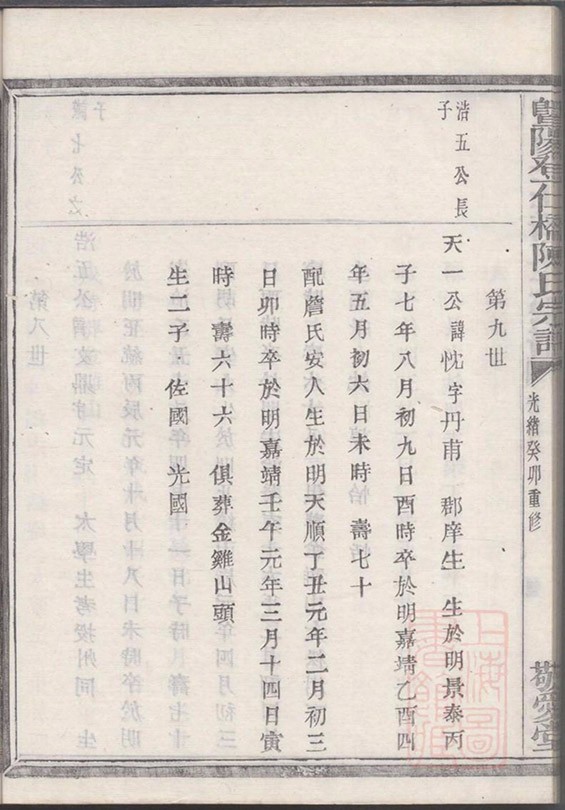 暨陽登仕橋陳氏宗譜
光緒癸卯重修
敬愛堂
第九世
浩五公長
子
天一公諱忱字丹甫 郡庠生 生於明景泰丙
子七年八月初九日酉時卒於明嘉靖乙酉四
年五月初六日未時 壽七十
配詹氏安人生於明天順丁丑元年二月初三
日卯時卒於明嘉靖壬午元年三月十四日寅
時 壽六十六 俱葬金雞山頭
生二子 佐國 光國
上海圖
書館藏